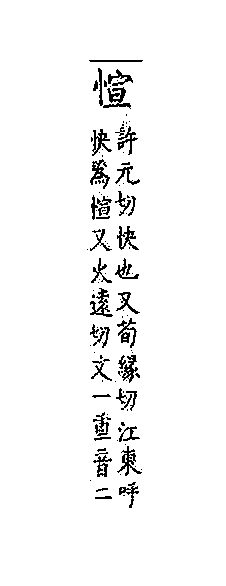 愃
許元切快也又荀緣切江東呼
快為愃又火遠切文一重音二